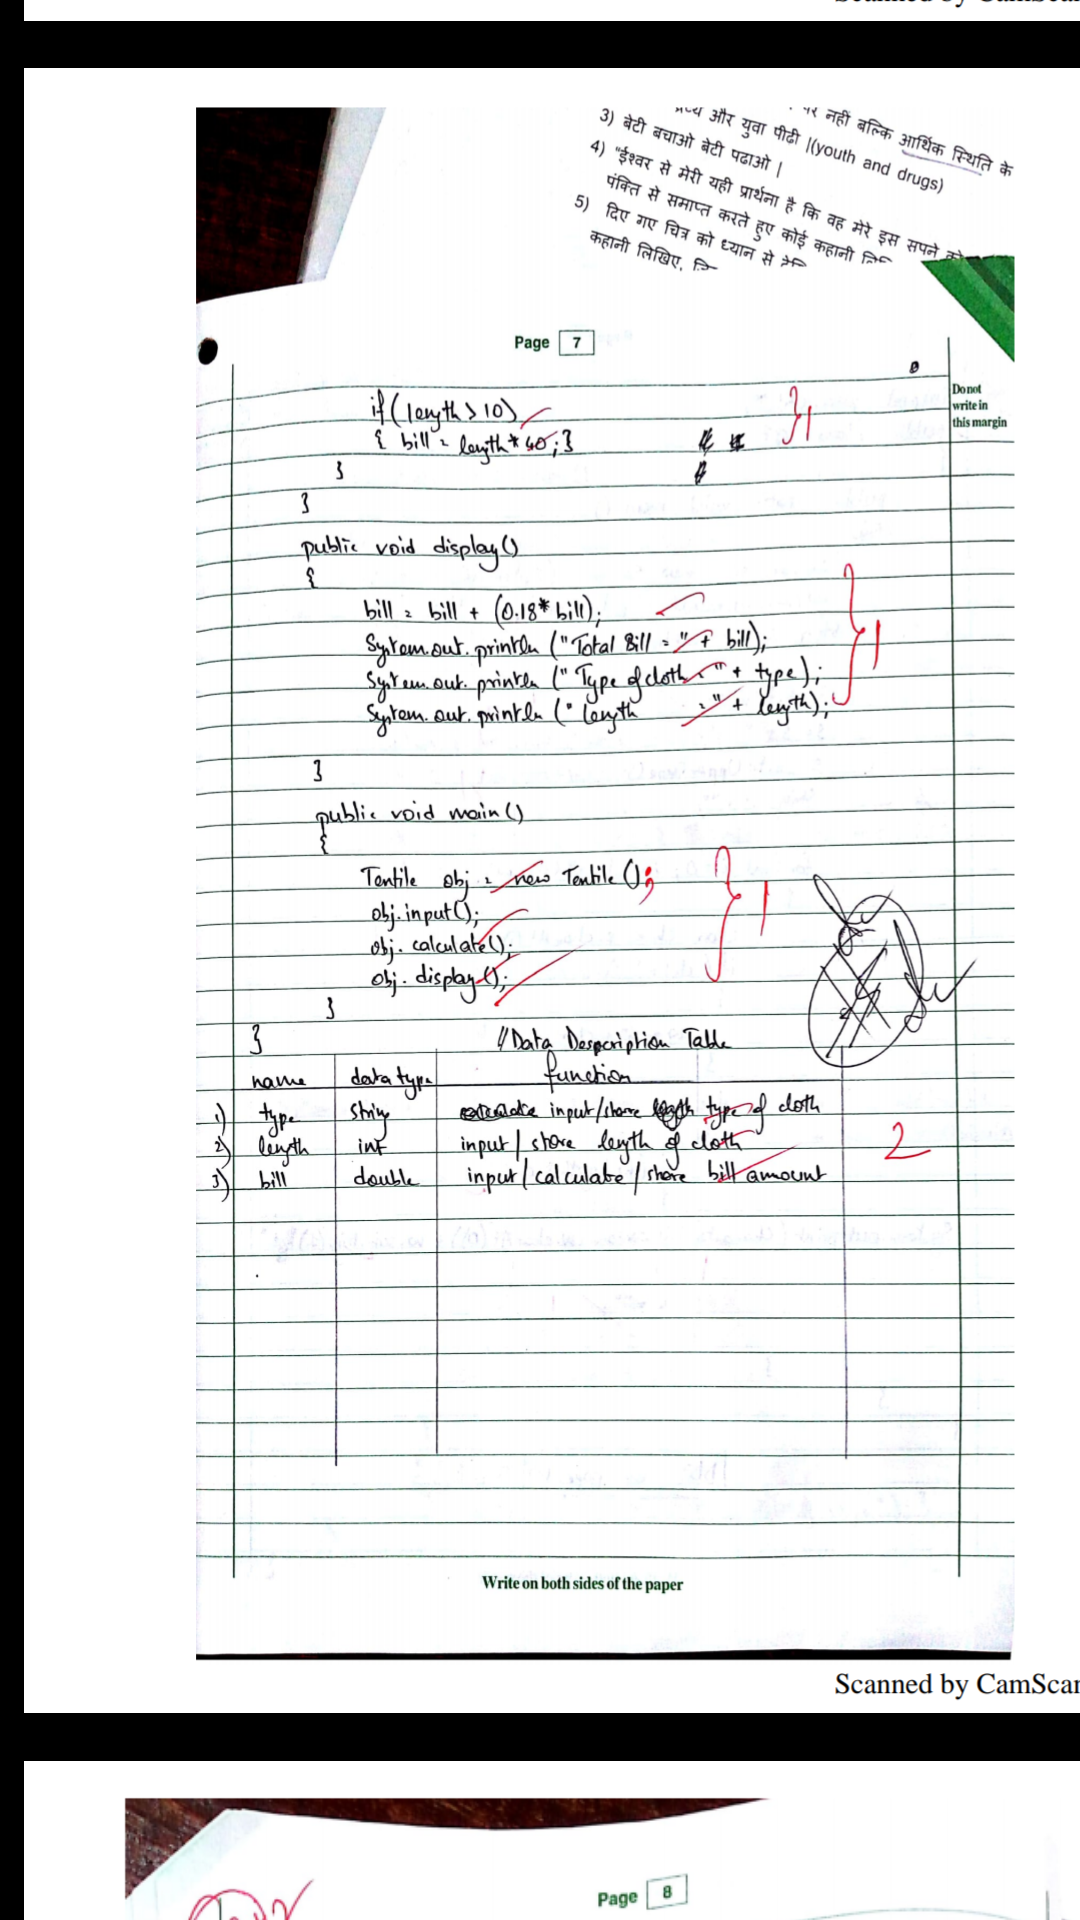 पर नहीं बल्कि आर्थिक स्थिति के
और युवा पीढी |(youth and drugs)
3) बेटी बचाओ बेटी पढाओ |
4) "ईश्वर से मेरी यही प्रार्थना है कि वह मेरे इस सपने को
पंक्ति से समाप्त करते हुए कोई कहानी
5) दिए गए चित्र को ध्यान से
कहानी लिखिए,
Page 7
Do not
write in
this margin
if (length > 10)
{ bill = length * 40; }
} 1
}
}
public void display()
{
bill = bill + (0.18* bill);
System.out.println ("Total Bill = " + bill);
System.out.println ("Type of cloth = " + type);
System.out.println ("length = " + length);
} 1
}
public void main()
{
Textile obj = new Textile ();
obj.input();
obj.calculate();
obj.display();
} 1
}
}
//Data Despcription Table
name data type function
1) type string input/store type of cloth
2) length int input / store length of cloth
3) bill double input / calculate / store bill amount
2
Write on both sides of the paper
Scanned by CamScan
Page 8